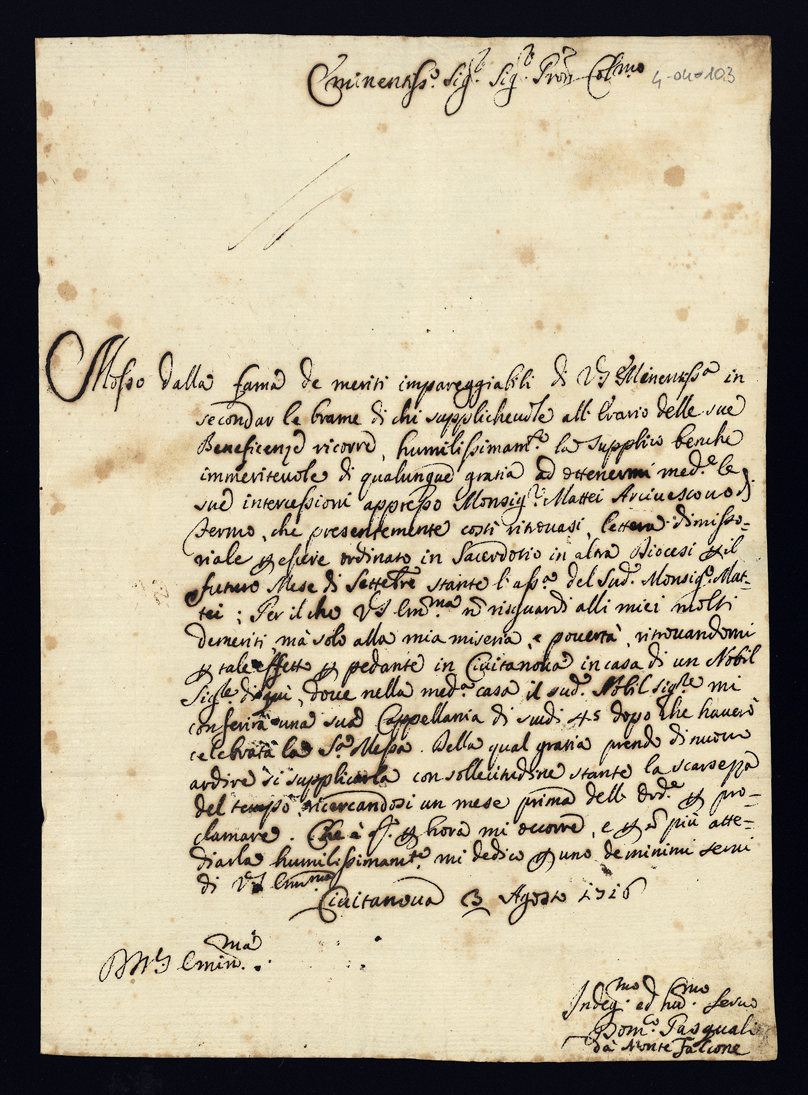 Eminentiss.o Sig.r Sig.r Pron Col.mo
4-04-103
Mosso dalla fama de meriti impareggiabili di V.S. Eminentiss.a in
secondar le brame di chi supplicheuole all'Erario delle sue
Beneficenze ricorre, humilissimam.te la supplico benche
immeriteuole di qualunque gratia ad ottenermi med.e le
sue intercessioni appresso Monsig.r Mattei Arciuescouo di
Fermo, che presentemente costì ritrouasi, lettera dimisso=
riale p essere ordinato in Sacerdotio in altra Diocesi p il
futuro Mese di Settebre stante l'ass.a del Sud.o Monsig.r Mat=
tei; Per il che V.S. Em.ma n risguardi alli miei molti
demeriti, mà solo alla mia miseria, e pouertà, ritrouandomi
p tale effetto p pedante in Ciuitanoua in casa di un Nobil
Sig.re di qui, doue nella med.a casa il sud.o Nobil Sig.re mi
conferirà una sua Cappellania di scudi 45 dopo che hauerò
celebrata la S.a Messa. Della qual gratia prendo di nuouo
ardire di supplicarla con sollecitudine stante la scarsezza
del tempo, ricercandosi un mese prima dell' ord.e p pro=
clamare. Che è q.to p hora mi occorre, e p n più atte=
diarla humilissimam.te mi dedico p uno de minimi serui
di V.S. Emin.ma
Ciuitanoua 3 Agosto 1716
D V.S. Emin.ma
Indeg.mo ed hu.mo seruo
Dom.co Pasquali
da Monte Falcone